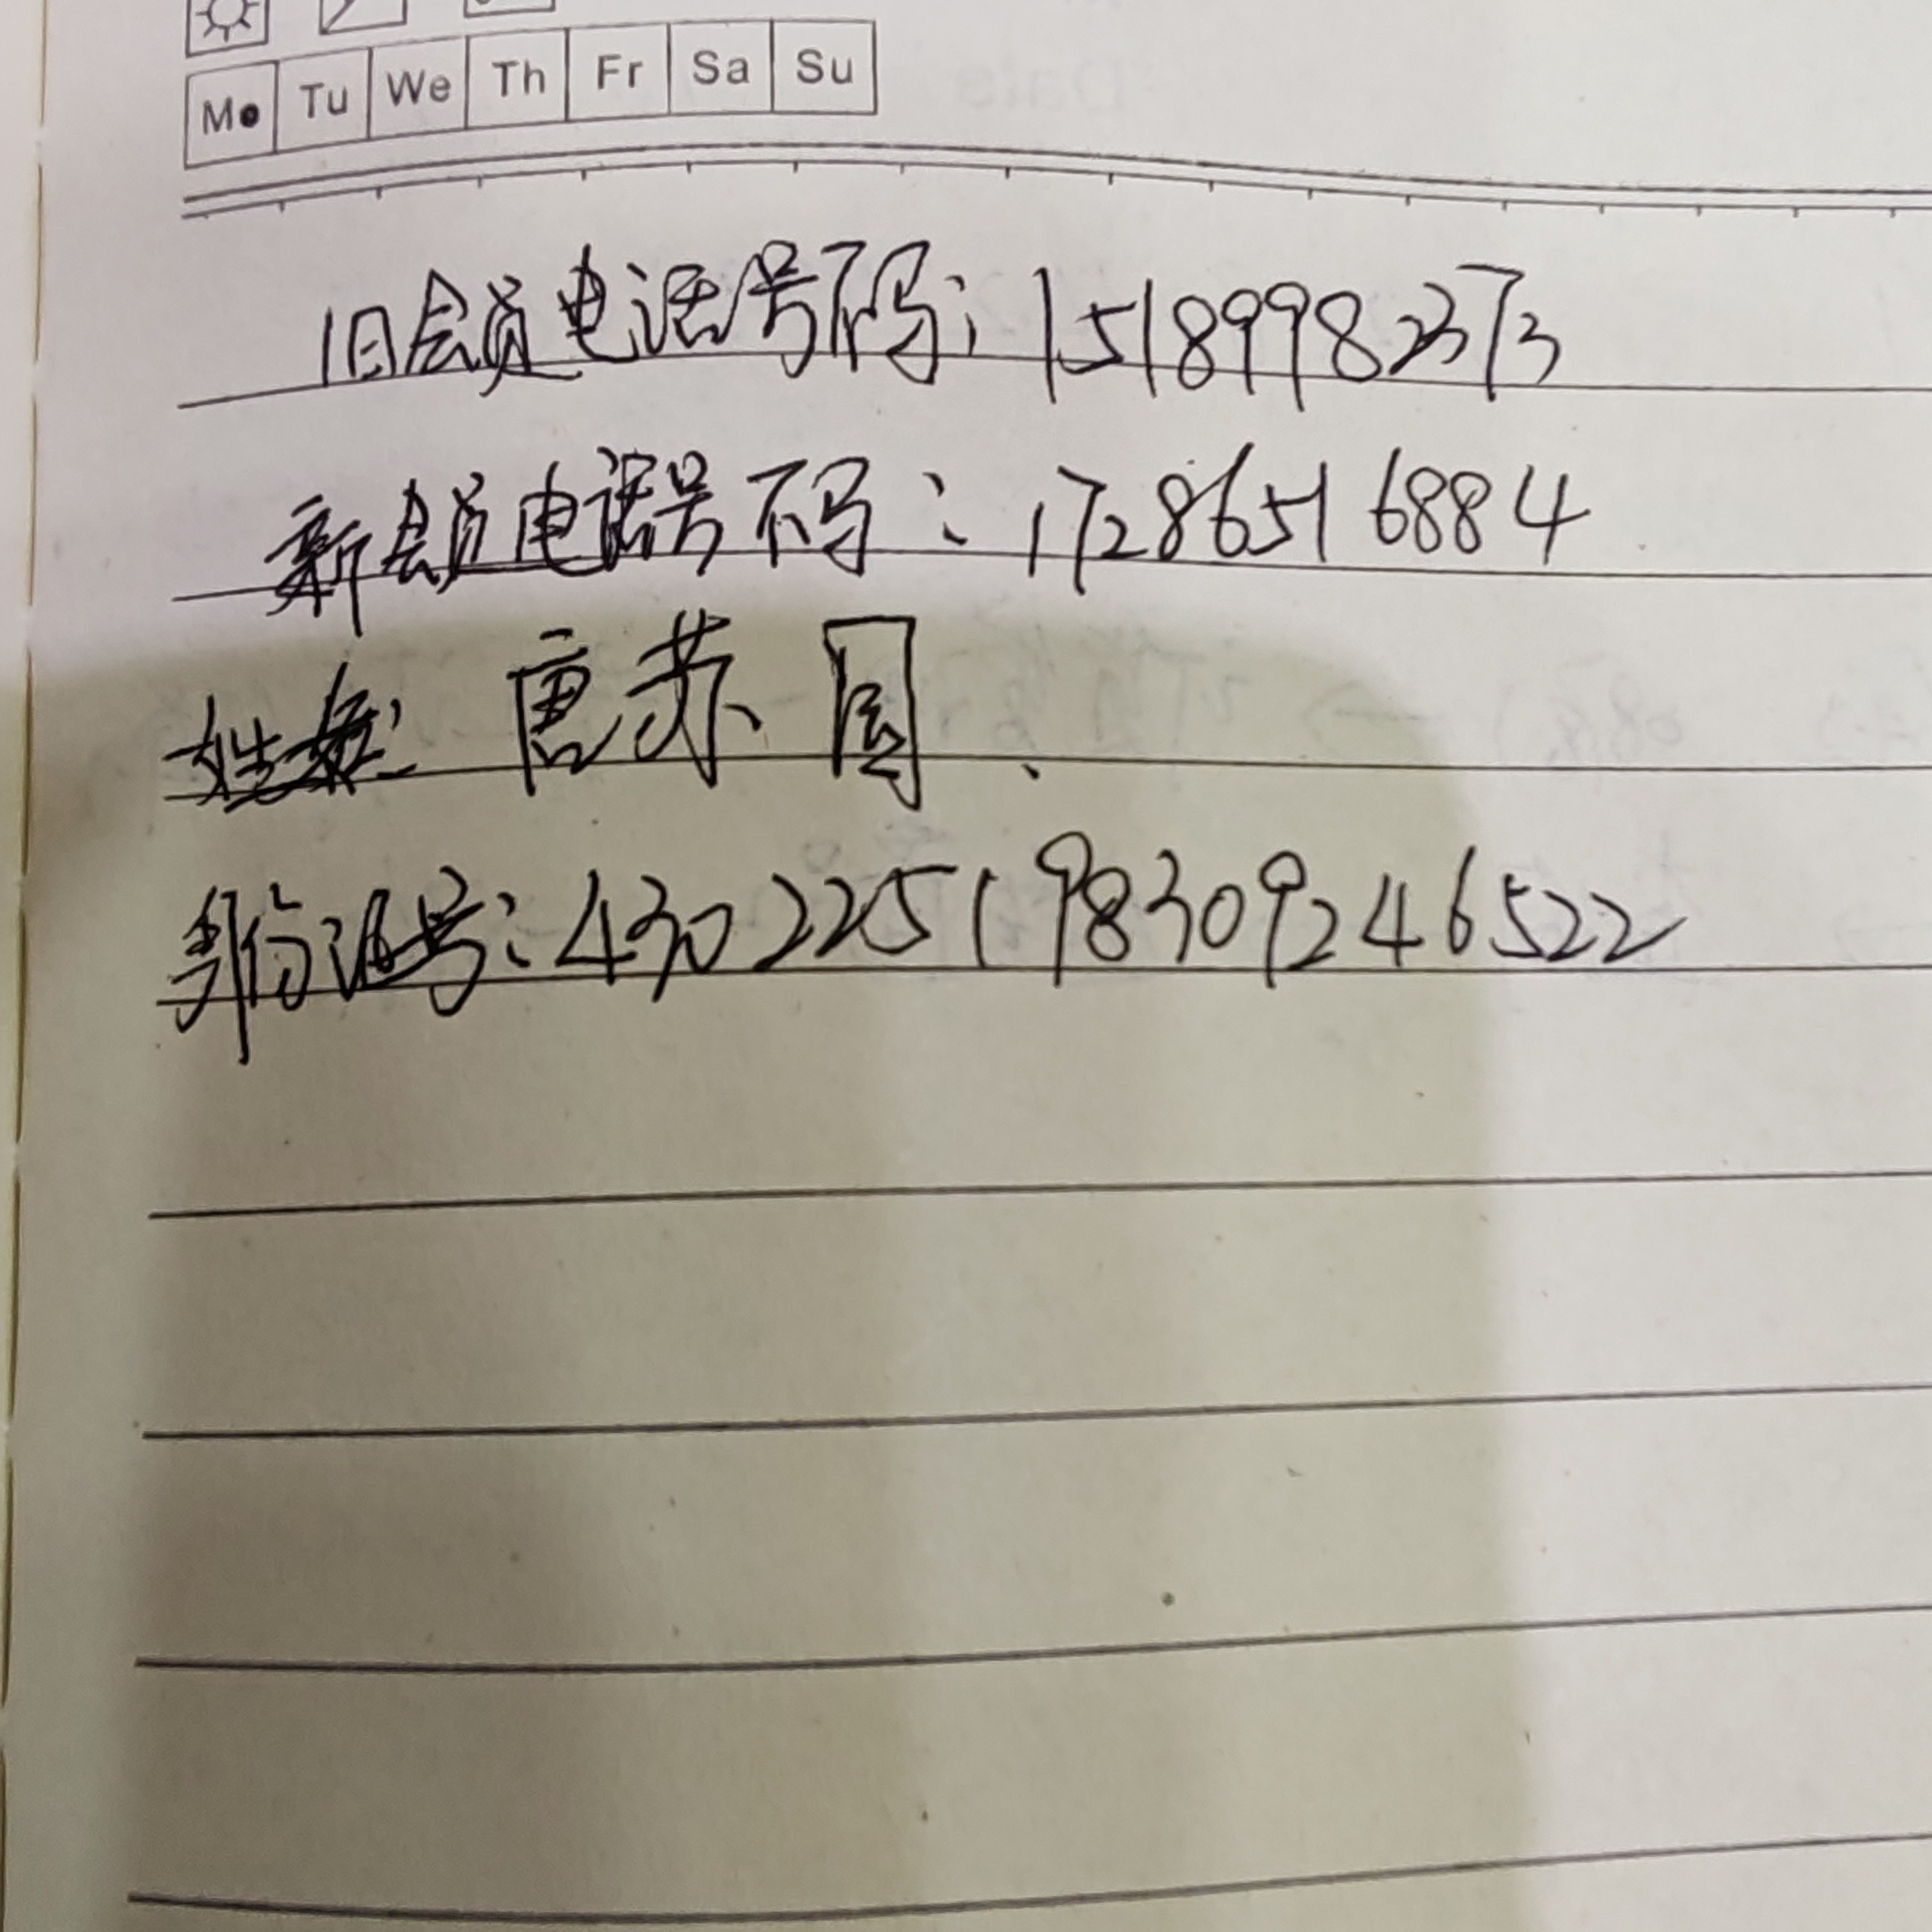 Mo Tu We Th Fr Sa Su
旧会员电话号码：15189982373
新会员电话号码：17286516884
姓名：唐苏圆
身份证号：430225198309246522